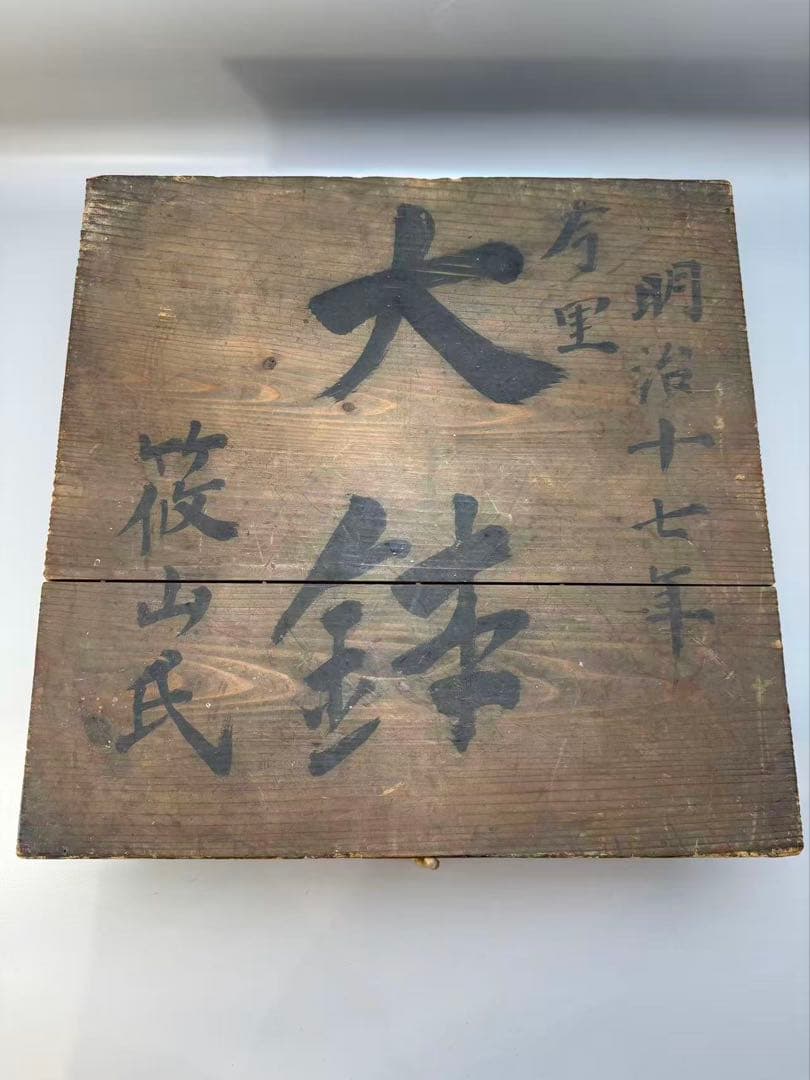 明治十七年
今里
大鉢
筱山氏